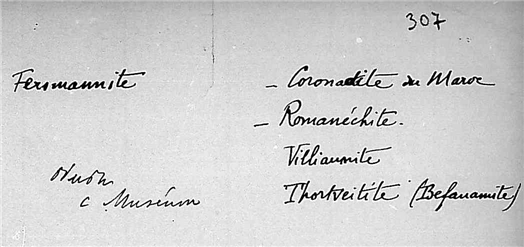 307
Fersmannite
- Coronadite du Maroc
- Romanéchite.
Villiaumite
c Muséum
Thortveitite (Befanamite)